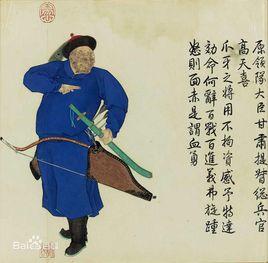 原領隊大臣甘肅提督總兵官
高天喜
爪牙之將用不拘資感予特達
効命何辭百戰百進義弗旋踵
怒則面赤是謂血勇
Bai百科